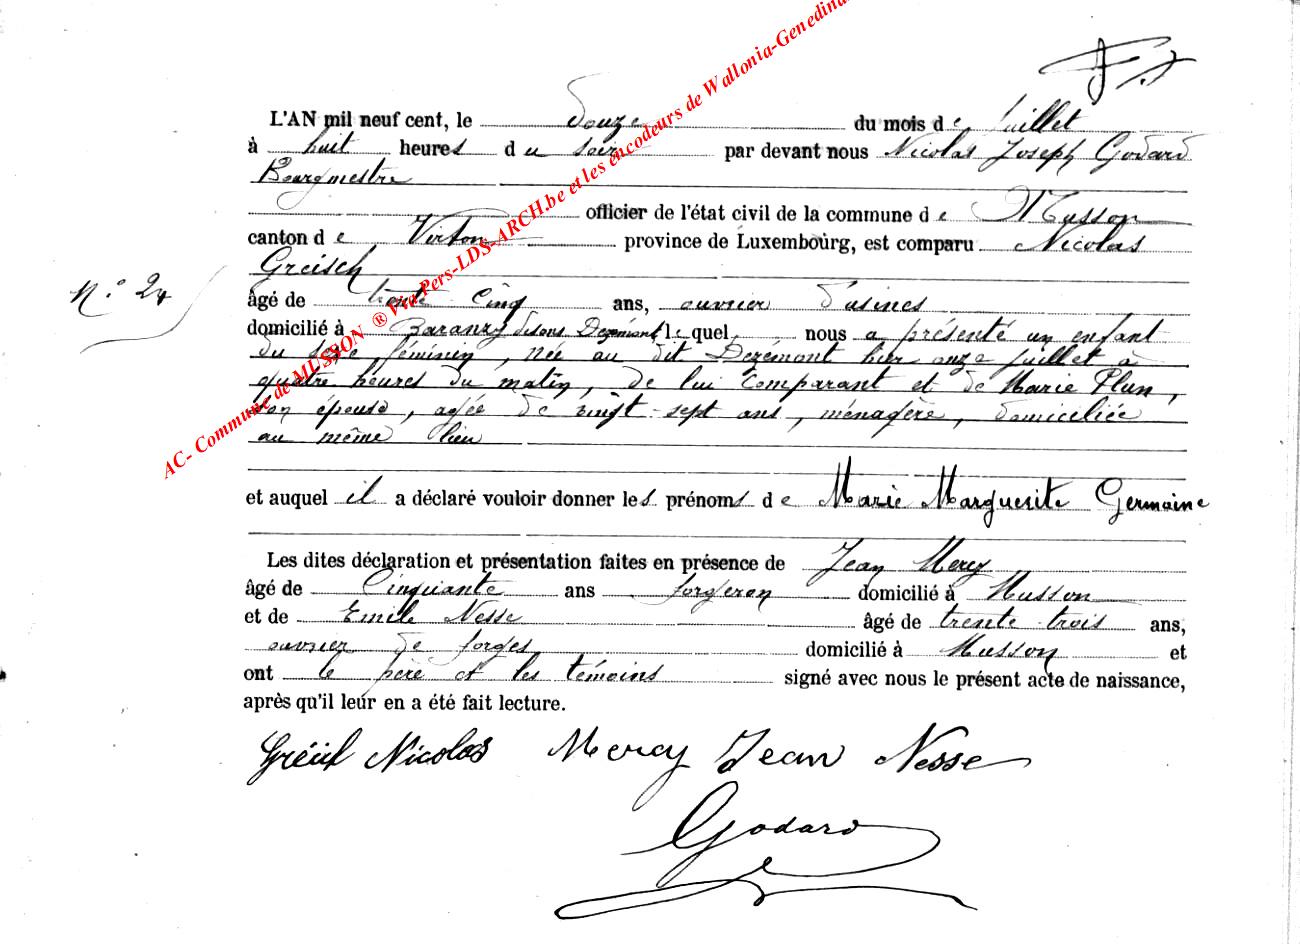 L'AN mil neuf cent, le douze du mois de juillet
à huit heures du soir par devant nous Nicolas Joseph Godard
Bourgmestre
officier de l'état civil de la commune de Musson
canton de Virton province de Luxembourg, est comparu Nicolas
Greisch
N.° 24
âgé de trente cinq ans, ouvrier d'usines
domicilié à Baranzy disons Dezémont lequel nous a présenté un enfant
du sexe féminin, née au dit Dezémont hier onze juillet à
quatre heures du matin, de lui comparant et de Marie Plun,
son épouse, agée de vingt-sept ans, ménagère, domiciliée
au même lieu
et auquel il a déclaré vouloir donner les prénoms de Marie Marguerite Germaine
Les dites déclaration et présentation faites en présence de Jean Mercy
âgé de Cinquante ans forgeron domicilié à Musson
et de Emile Nesse âgé de trente-trois ans,
ouvrier de forges domicilié à Musson et
ont le père et les témoins signé avec nous le présent acte de naissance,
après qu'il leur en a été fait lecture.
Nicolas Mercy Jean Nesse
Godard
AC- Commune de MUSSON ® Via Pers-LDS-ARCH.be et les encodeurs de Wallonia-Genedina